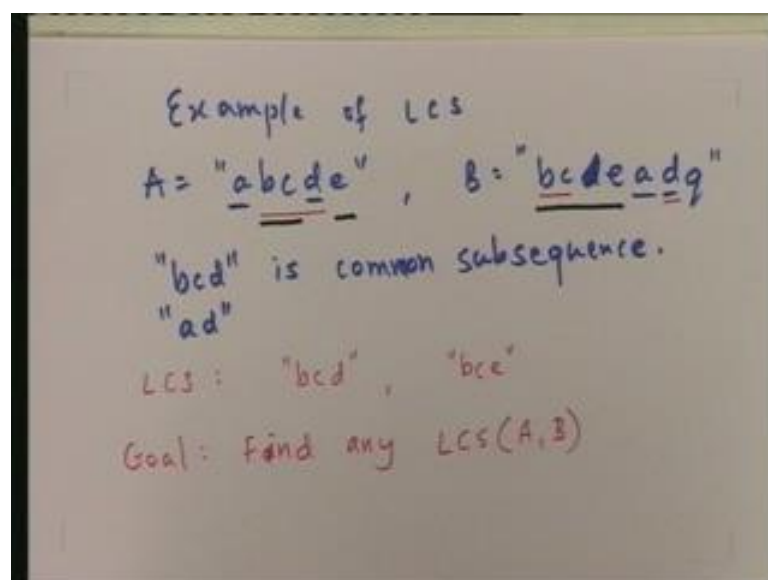 Example of LCS
A = "abcde" , B = "bcdeadq"
"bcd" is common subsequence.
"ad"
LCS : "bcd" , "bce"
Goal : Find any LCS(A,B)